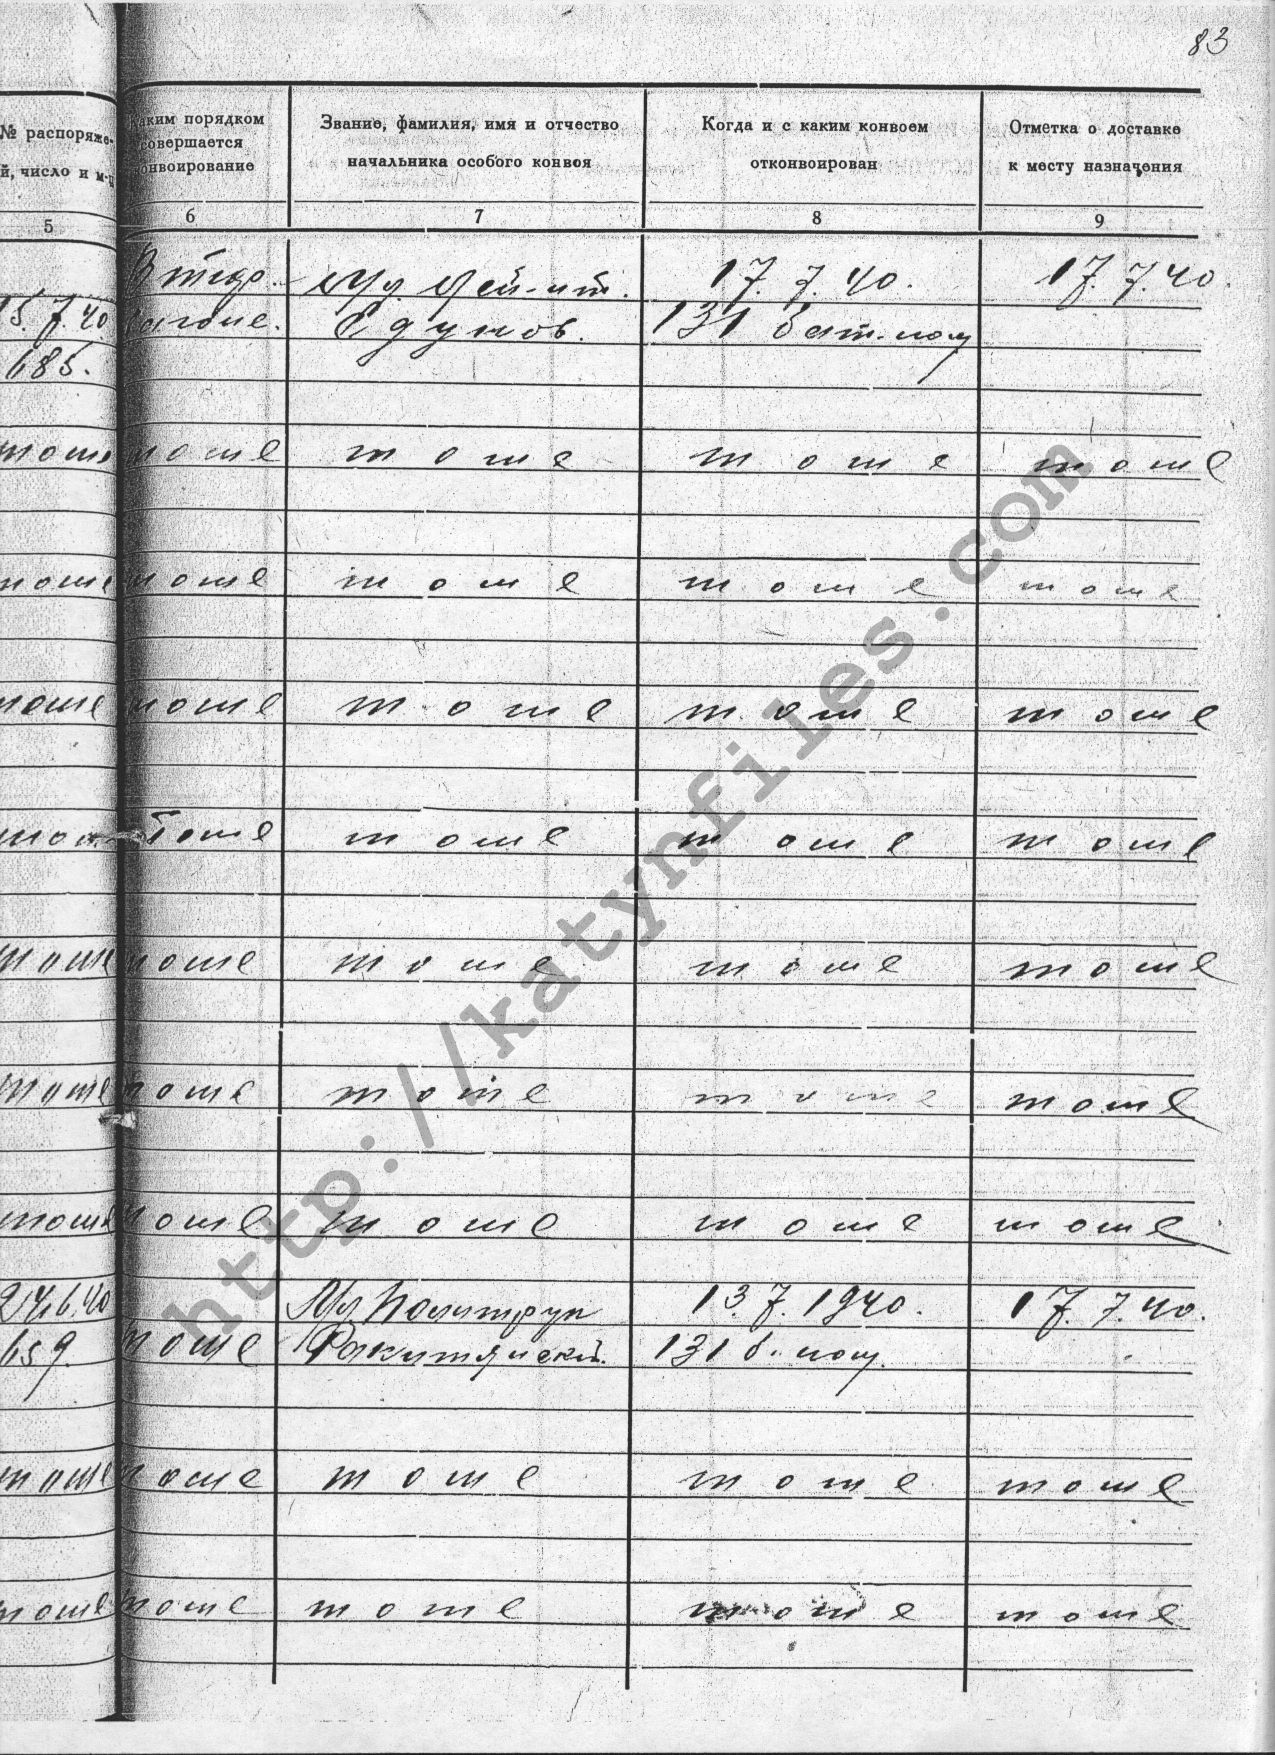 83
№ распоряже-
й, число и м-ц
Каким порядком
совершается
конвоирование
Звание, фамилия, имя и отчество
начальника особого конвоя
Когда и с каким конвоем
отконвоирован
Отметка о доставке
к месту назначения
5 6 7 8 9
В тюр. Мл. Лей-нт. 17.7.40. 17.7.40.
15.7.40 вагоне. Едунов. 131 бат. пом
685.
тоже тоже тоже тоже тоже
тоже тоже тоже тоже тоже
тоже тоже тоже тоже тоже
тоже тоже тоже тоже тоже
тоже тоже тоже тоже тоже
тоже тоже тоже тоже тоже
тоже тоже тоже тоже тоже
24.6.40 Мл Политрук 13.7.1940. 17.7.40.
659 тоже Ракитянский. 131 б. пом.
тоже тоже тоже тоже тоже
тоже тоже тоже тоже тоже
http://katynfiles.com